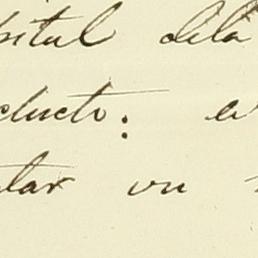 pitul dela
ducto: a
tar un